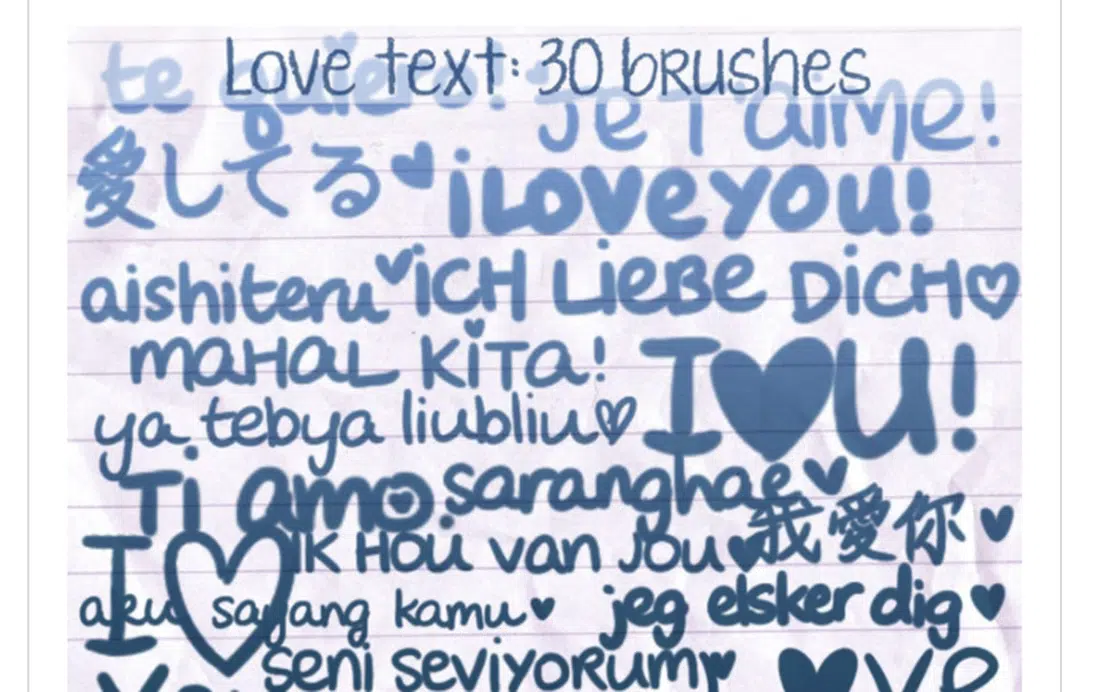 Love text: 30 brushes
te quiero!
je t'aime!
愛してる
i Love you!
aishiteru
iCH LieBe DiCH
maHaL KiTa!
I ♥ U!
ya tebya liubliu
Ti amo
saranghae
我愛你
I ♡
iK Hou van jou
aku sayang kamu
jeg elsker dig
seni seviyorum